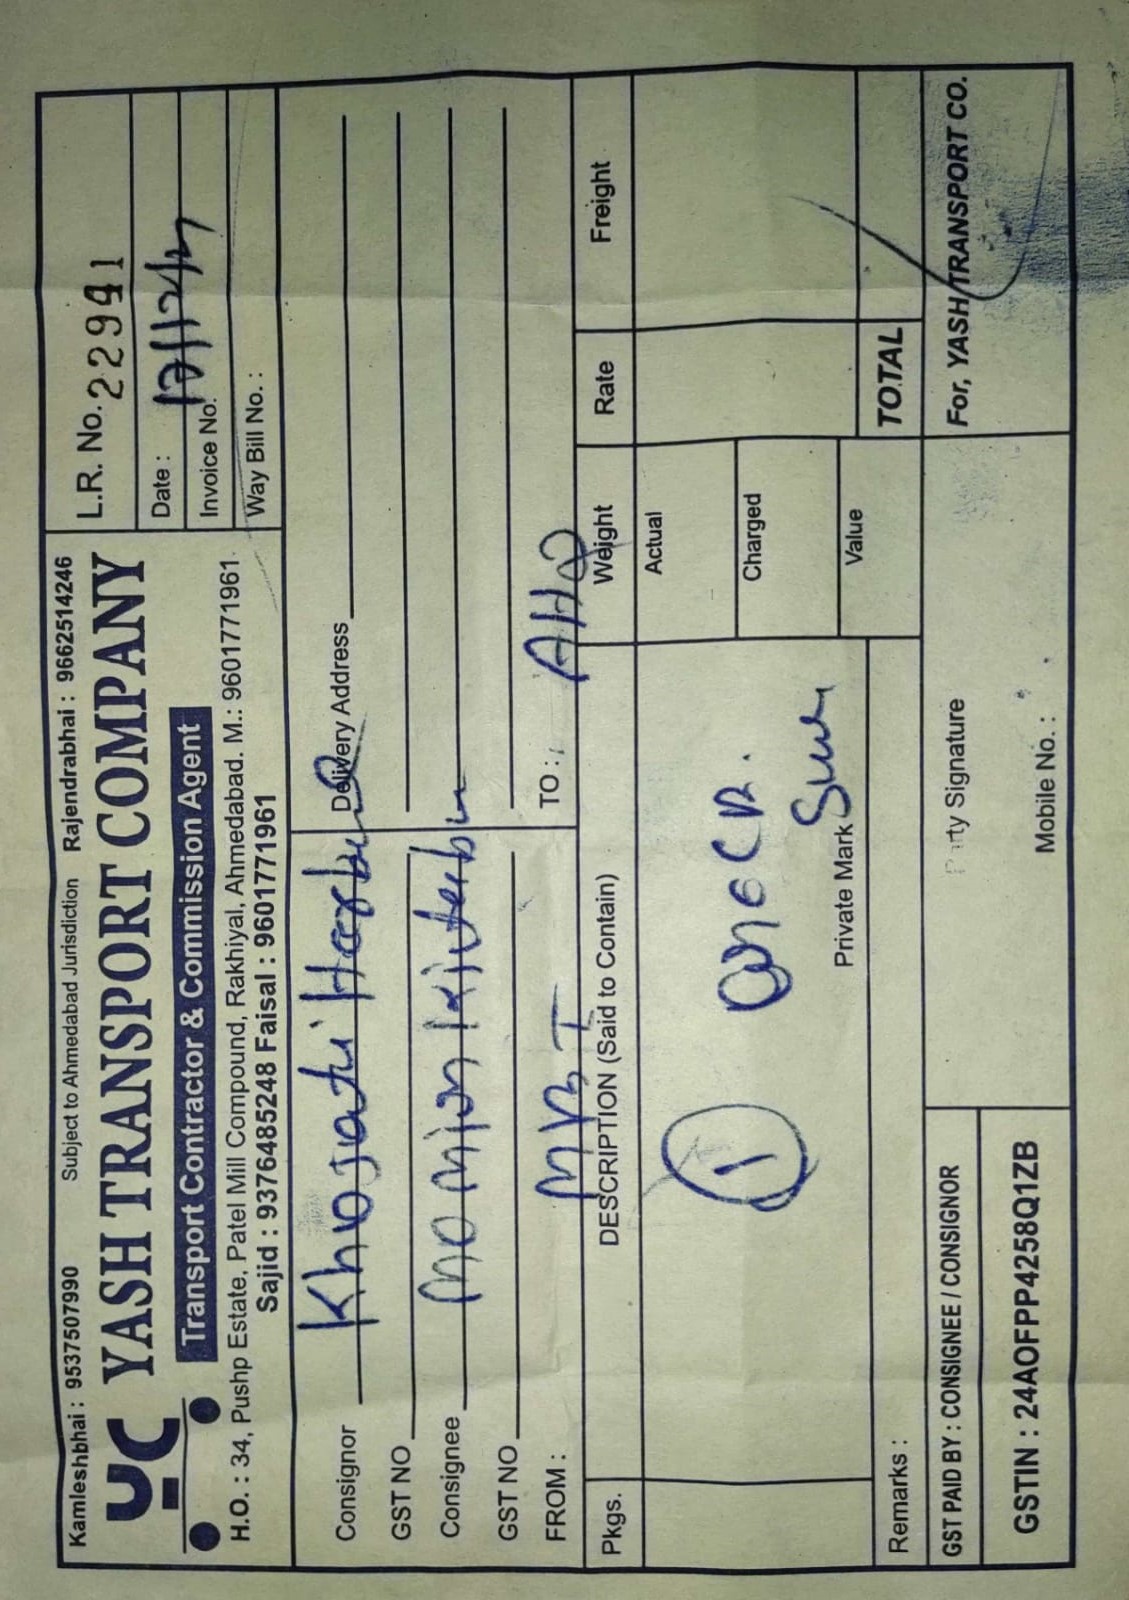 Kamleshbhai : 9537507990 Subject to Ahmedabad Jurisdiction Rajendrabhai : 9662514246
YC YASH TRANSPORT COMPANY
Transport Contractor & Commission Agent
H.O. : 34, Pushp Estate, Patel Mill Compound, Rakhiyal, Ahmedabad. M.: 9601771961
Sajid : 9376485248 Faisal : 9601771961
L.R. No. 22941
Date :
Invoice No.
Way Bill No. :
Consignor
Delivery Address
GST NO
Consignee
GST NO
FROM : TO :
Pkgs. DESCRIPTION (Said to Contain) Weight Rate Freight
Actual
1
Charged
Private Mark
Value
Remarks : TOTAL
GST PAID BY : CONSIGNEE / CONSIGNOR
Party Signature
For, YASH TRANSPORT CO.
GSTIN : 24AOFPP4258Q1ZB
Mobile No. :